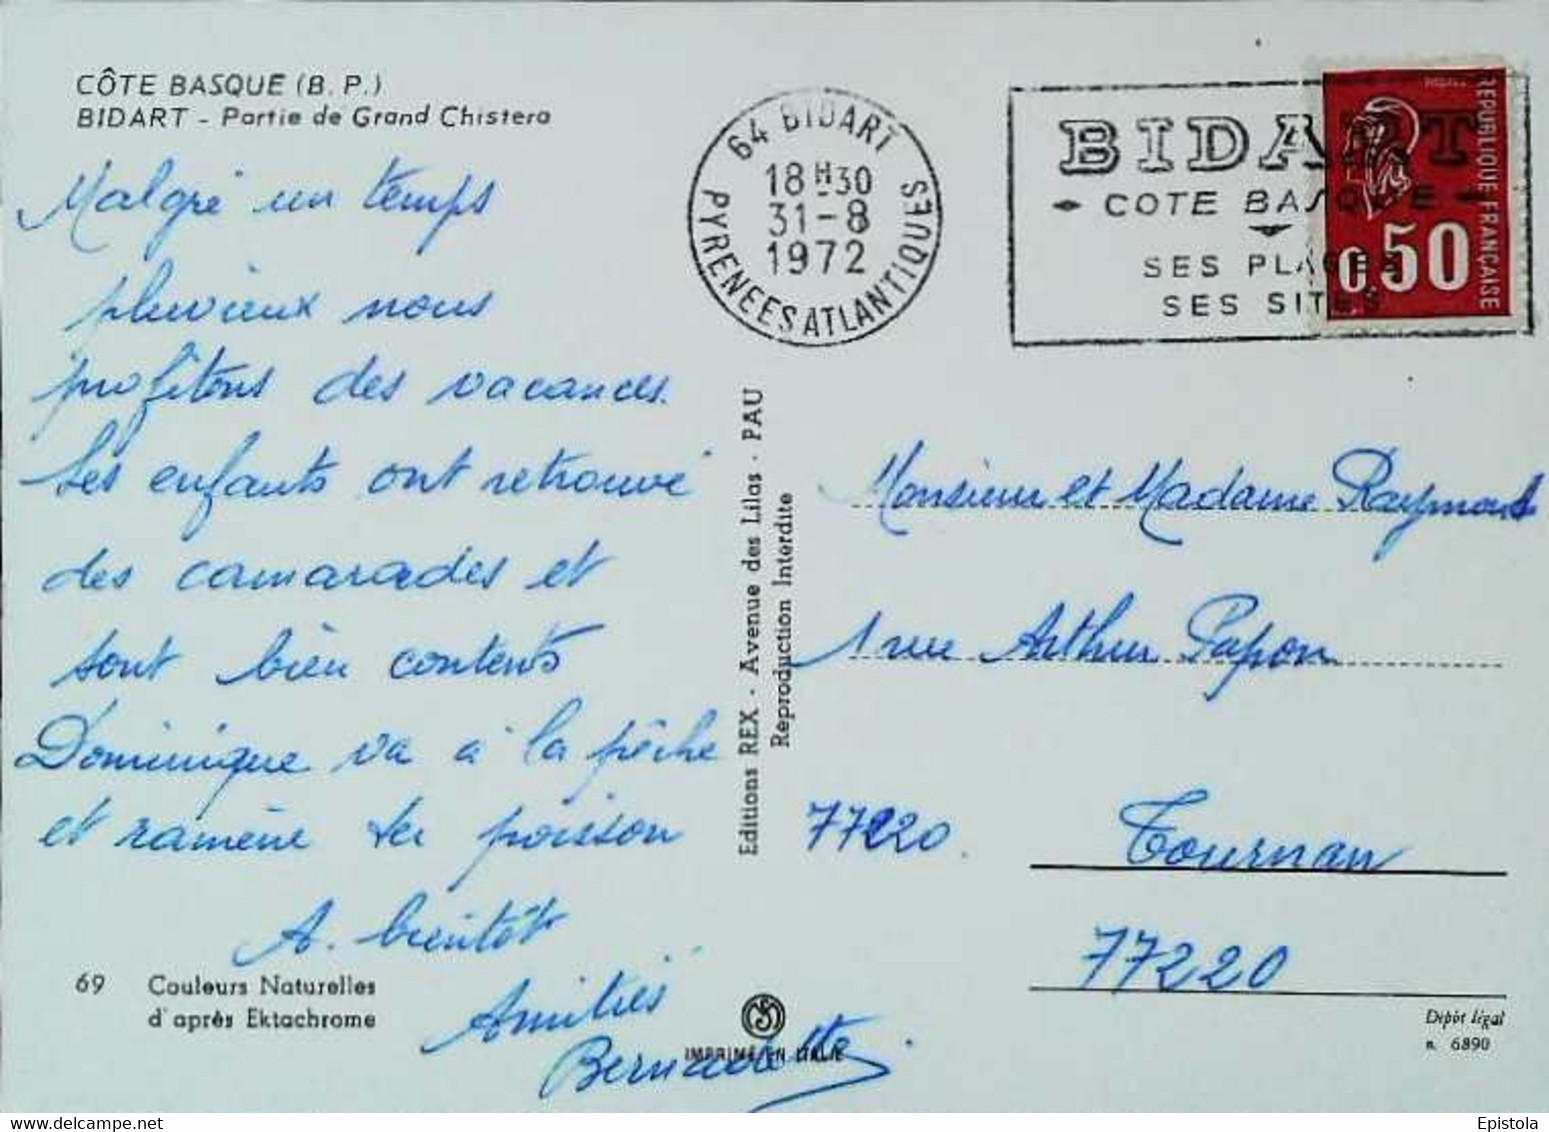 CÔTE BASQUE (B. P.)
BIDART - Partie de Grand Chistera
Malgré un temps
pluvieux nous
profitons des vacances.
Les enfants ont retrouvé
des camarades et
sont bien contents
Dominique va à la pêche
et ramène du poisson
A. bientôt
Amitiés
Bernadette
69 Couleurs Naturelles
d'après Ektachrome
64 BIDART
18H30
31-8
1972
PYRENEES ATLANTIQUES
BIDART
COTE BASQUE
SES PLAGES
SES SITES
REPUBLIQUE FRANÇAISE
0,50
Editions REX - Avenue des Lilas - PAU
Reproduction Interdite
Monsieur et Madame Raymond
1 rue Arthur Papon
77220 Tournan
77220
IMPRIMÉ EN ITALIE
Dépôt légal
n. 6890
Epistola